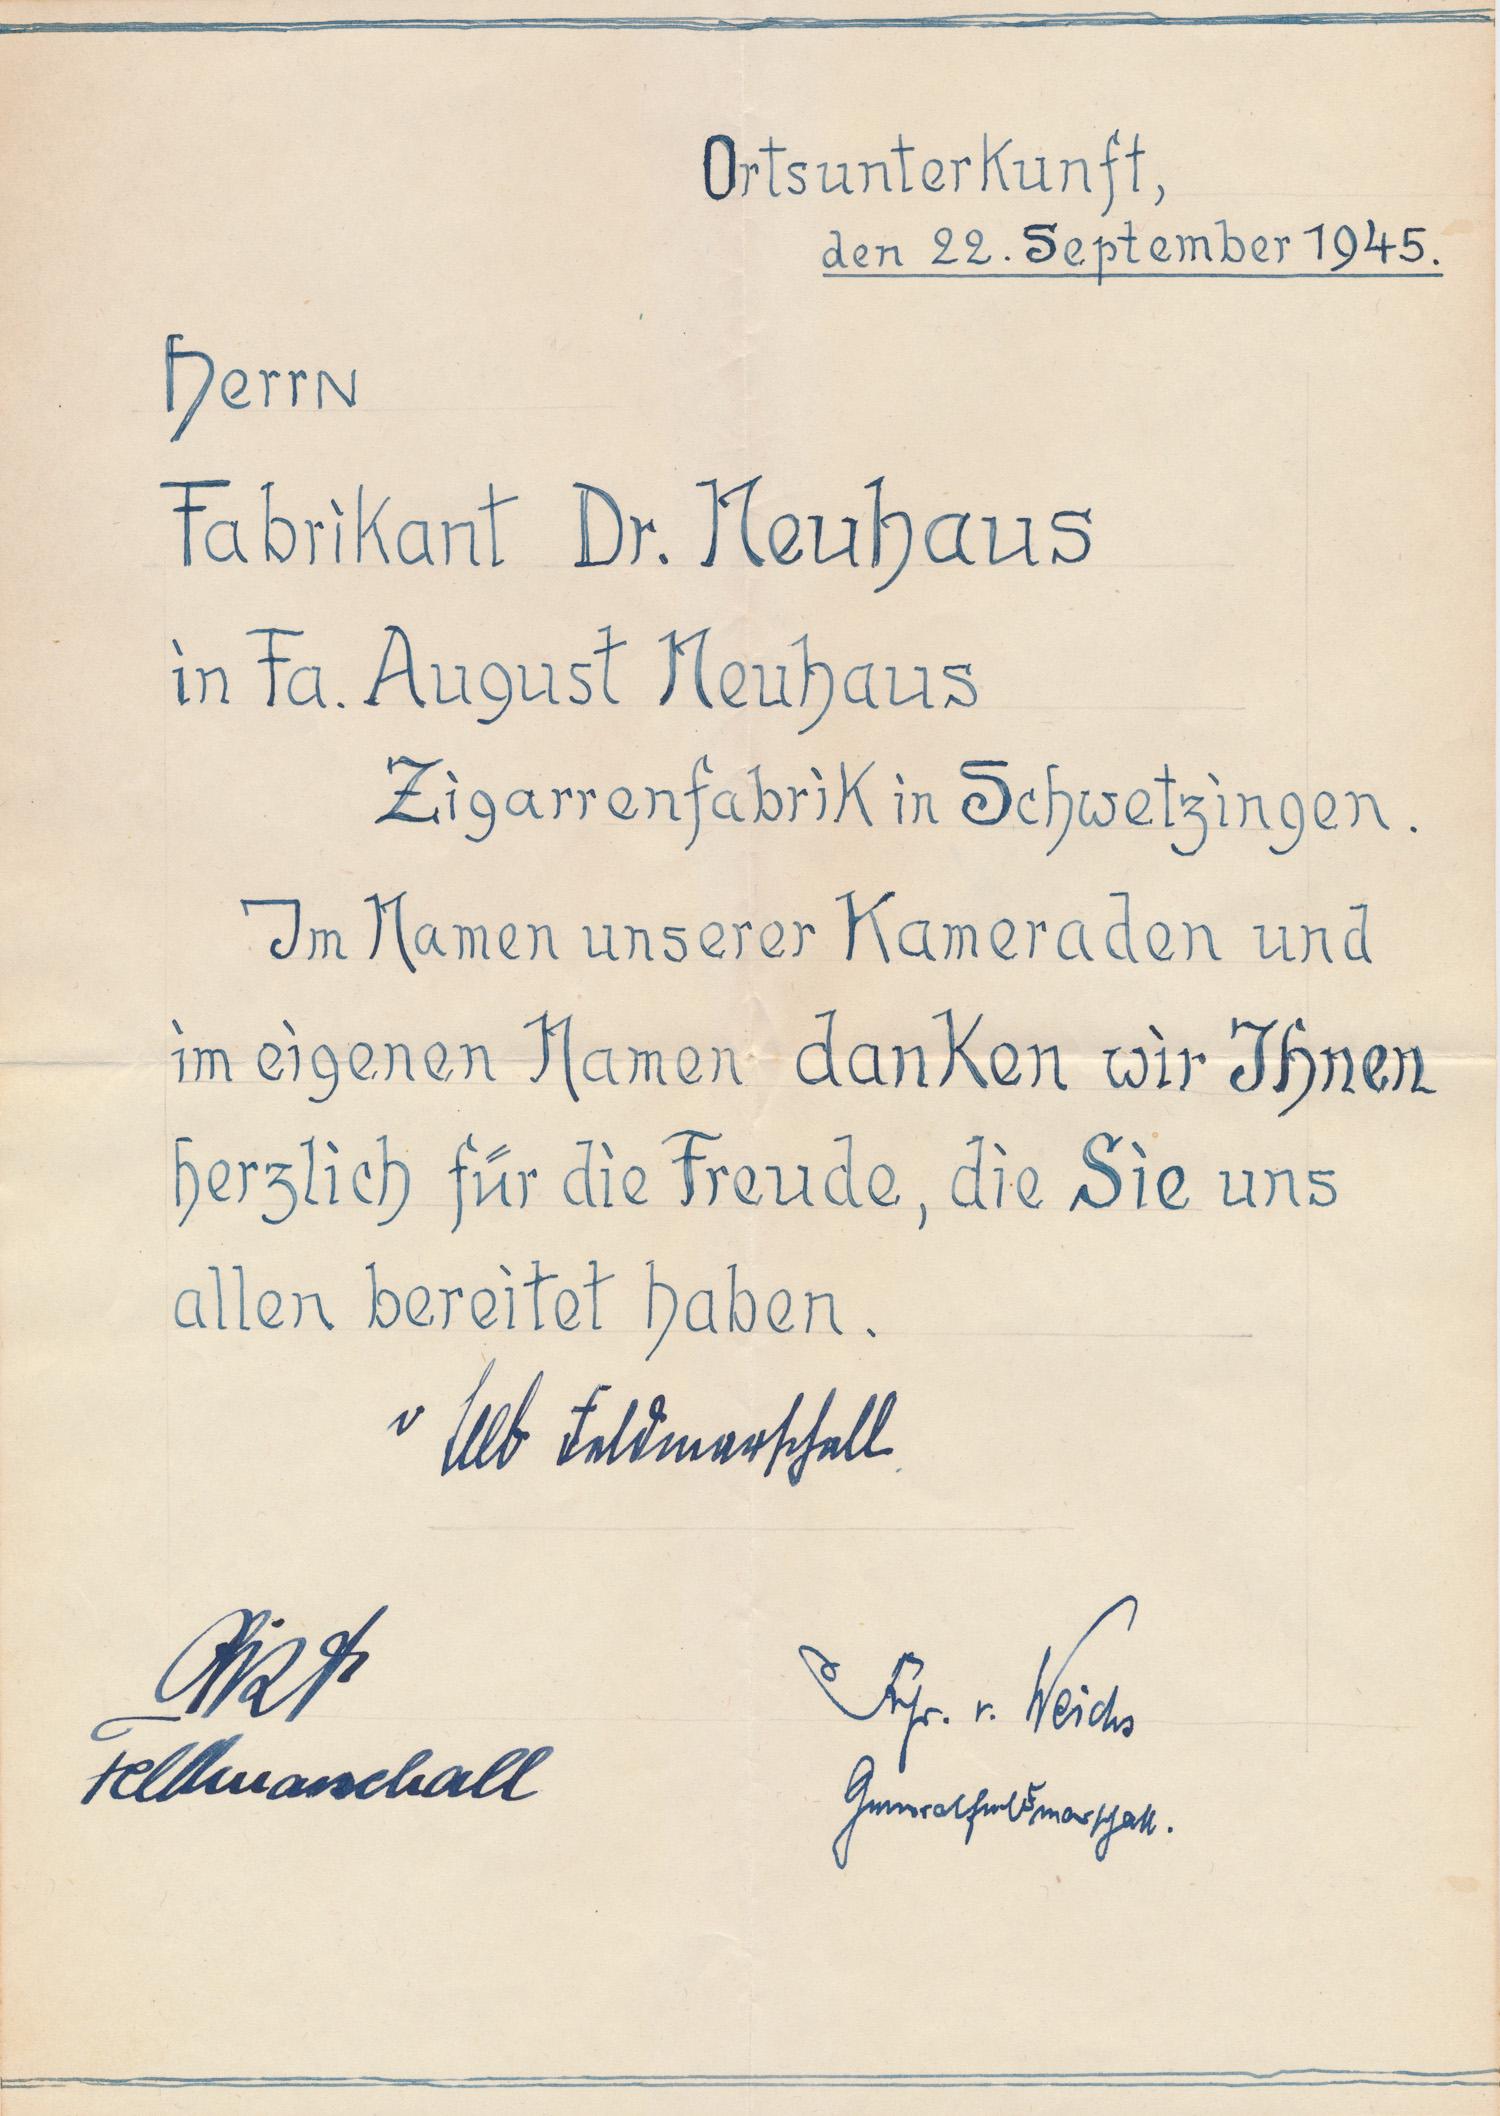 Ortsunterkunft,
den 22. September 1945.
Herrn
Fabrikant Dr. Neuhaus
in Fa. August Neuhaus
Zigarrenfabrik in Schwetzingen.
Im Namen unserer Kameraden und
im eigenen Namen danken wir Ihnen
herzlich für die Freude, die Sie uns
allen bereitet haben.
v Leeb Feldmarschall
List
Feldmarschall
Frhr. v. Weichs
Generalfeldmarschall.